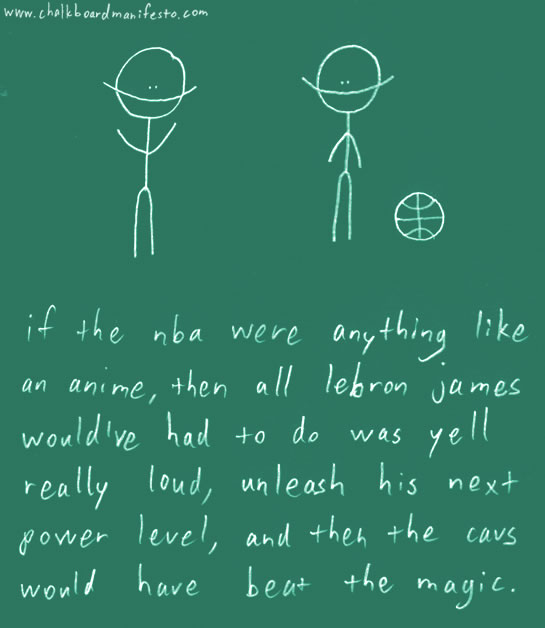 www.chalkboardmanifesto.com
if the nba were anything like
an anime, then all lebron james
would've had to do was yell
really loud, unleash his next
power level, and then the cavs
would have beat the magic.